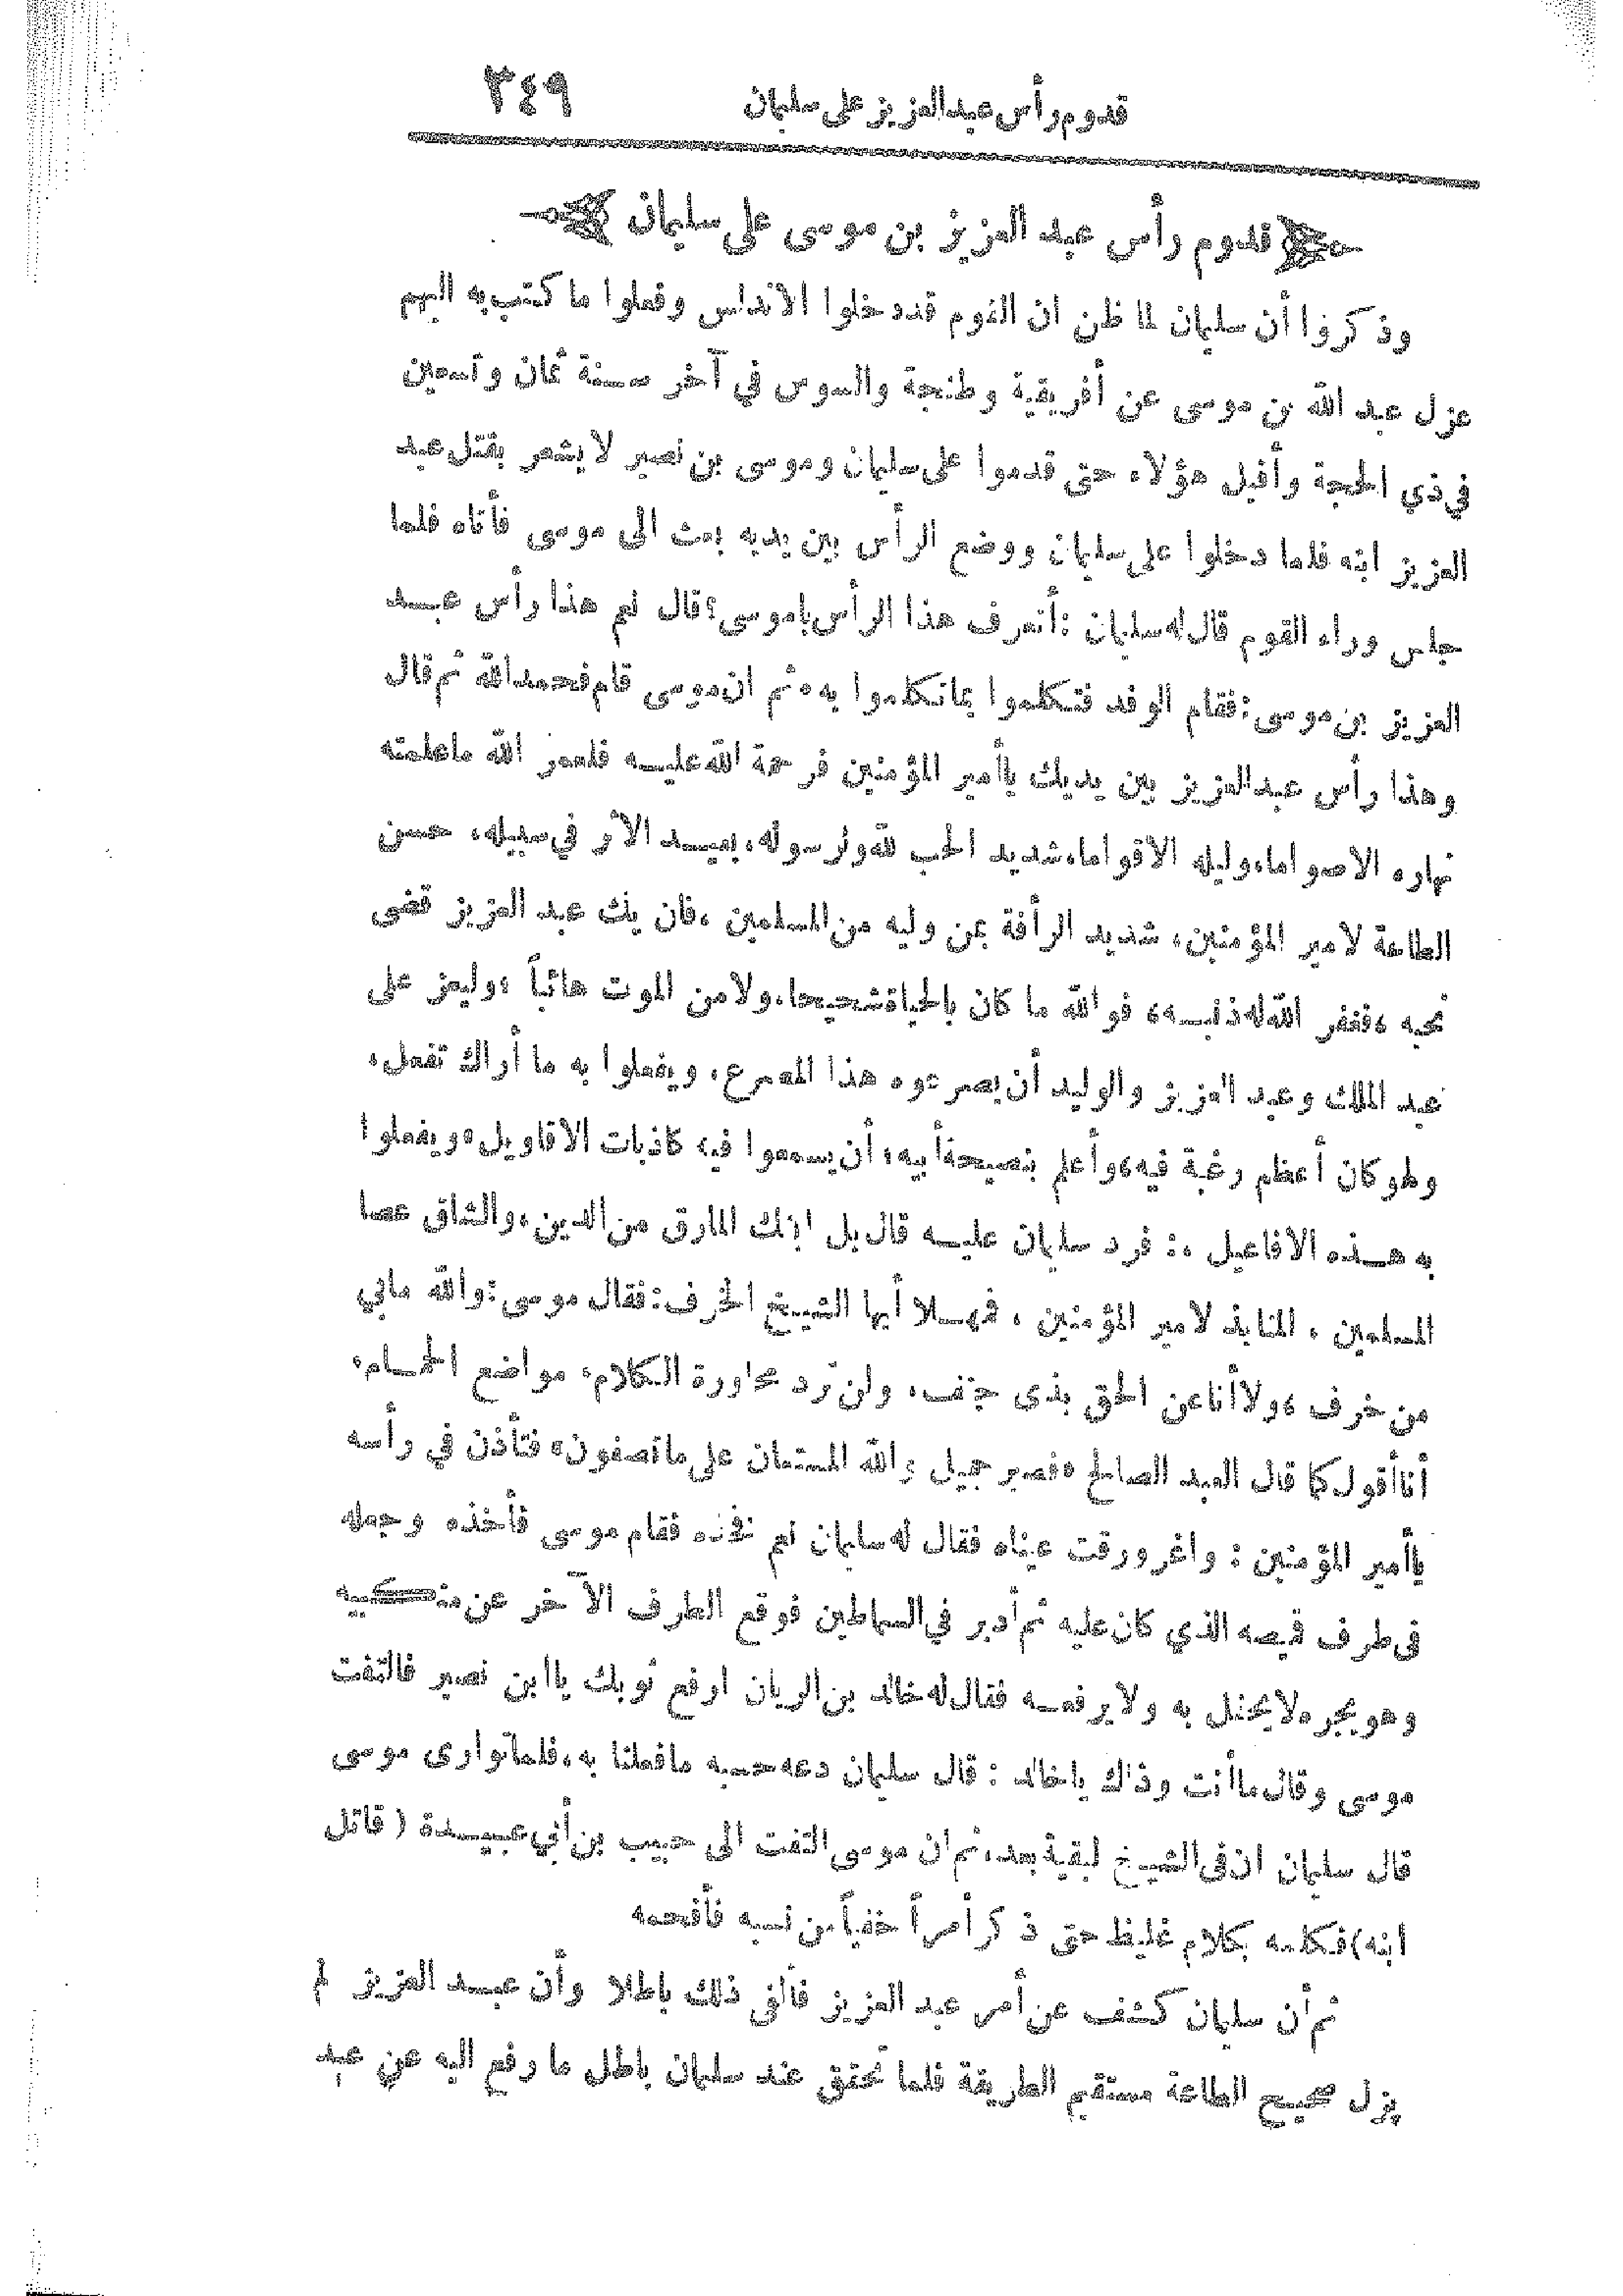 قدوم رأس عبد العزيز على سليمان ٣٤٩
قدوم رأس عبد العزيز بن موسى على سليمان
وذكروا أن سليمان لما ظن ان القوم قد دخلوا الاندلس وفعلوا ما كتب به اليهم
عزل عبد الله بن موسى عن أفريقية وطنجة والسوس في آخر سنة ثمان وتسعين
في ذي الحجة وأقبل هؤلاء حتى قدموا على سليمان وموسى بن نصير لا يشعر بقتل عبد
العزيز ابنه فلما دخلوا على سليمان ووضع الرأس بين يديه بعث الى موسى فأتاه فلما
جلس وراء القوم قال له سليمان : أتعرف هذا الرأس ياموسى؟ قال نعم هذا رأس عبد
العزيز بن موسى: فقام الوفد فتكلموا بما تكلموا به، ثم ان موسى قام فحمد الله ثم قال
وهذا رأس عبد العزيز بين يديك ياأمير المؤمنين فرحمة الله عليه فلعمر الله ماعلمته
نهاره الا صواما، وليله الا قواما، شديد الحب لله ولرسوله، بعيد الأثر في سبيله، حسن
الطاعة لامير المؤمنين، شديد الرأفة بمن وليه من المسلمين ، فان يك عبد العزيز قضى
نحبه ، فغفر الله له ذنبه، فوالله ما كان بالحياة شحيحا، ولا من الموت هائباً ، وليعز على
عبد الملك وعبد العزيز والوليد أن يصرعوه هذا المصرع، ويفعلوا به ما أراك تفعل،
ولهو كان أعظم رغبة فيه، وأعلم بنصيحة أبيه، أن يسمعوا فيه كاذبات الاقاويل، ويفعلوا
به هذه الافاعيل .: فرد سليمان عليه قال بل ابنك المارق من الدين، والشاق عصا
المسلمين ، المنابذ لامير المؤمنين ، فمهلا أيها الشيخ الخرف: فقال موسى: والله مابي
من خرف ، ولا أنا عن الحق بذى جنف، ولن ترد محاورة الكلام، مواضع الحمام،
أنا أقول كما قال العبد الصالح «فصبر جميل والله المستعان على ماتصفون» فتأذن في رأسه
ياأمير المؤمنين : واغرورقت عيناه فقال له سليمان نعم فخذه فقام موسى فأخذه وجعله
فى طرف قميصه الذي كان عليه ثم أدبر في السماطين فوقع الطرف الآخر عن منكبيه
وهو يجره لا يحفل به ولا يرفعه فقال له خالد بن الريان ارفع ثوبك ياابن نصير فالتفت
موسى وقال ماأنت وذاك ياخالد : قال سليمان دعه حسبه مافعلنا به، فلما توارى موسى
قال سليمان ان فى الشيخ لبقية بعد، ثم ان موسى التفت الى حبيب بن أبي عبيدة ( قاتل
ابنه) فكلمه بكلام غليظ حتى ذكر أمراً خفياً من نسبه فأفحمه
ثم أن سليمان كشف عن أمر عبد العزيز فألفى ذلك باطلا وأن عبد العزيز لم
يزل صحيح الطاعة مستقيم الطريقة فلما تحقق عند سليمان باطل ما رفع اليه عن عبد